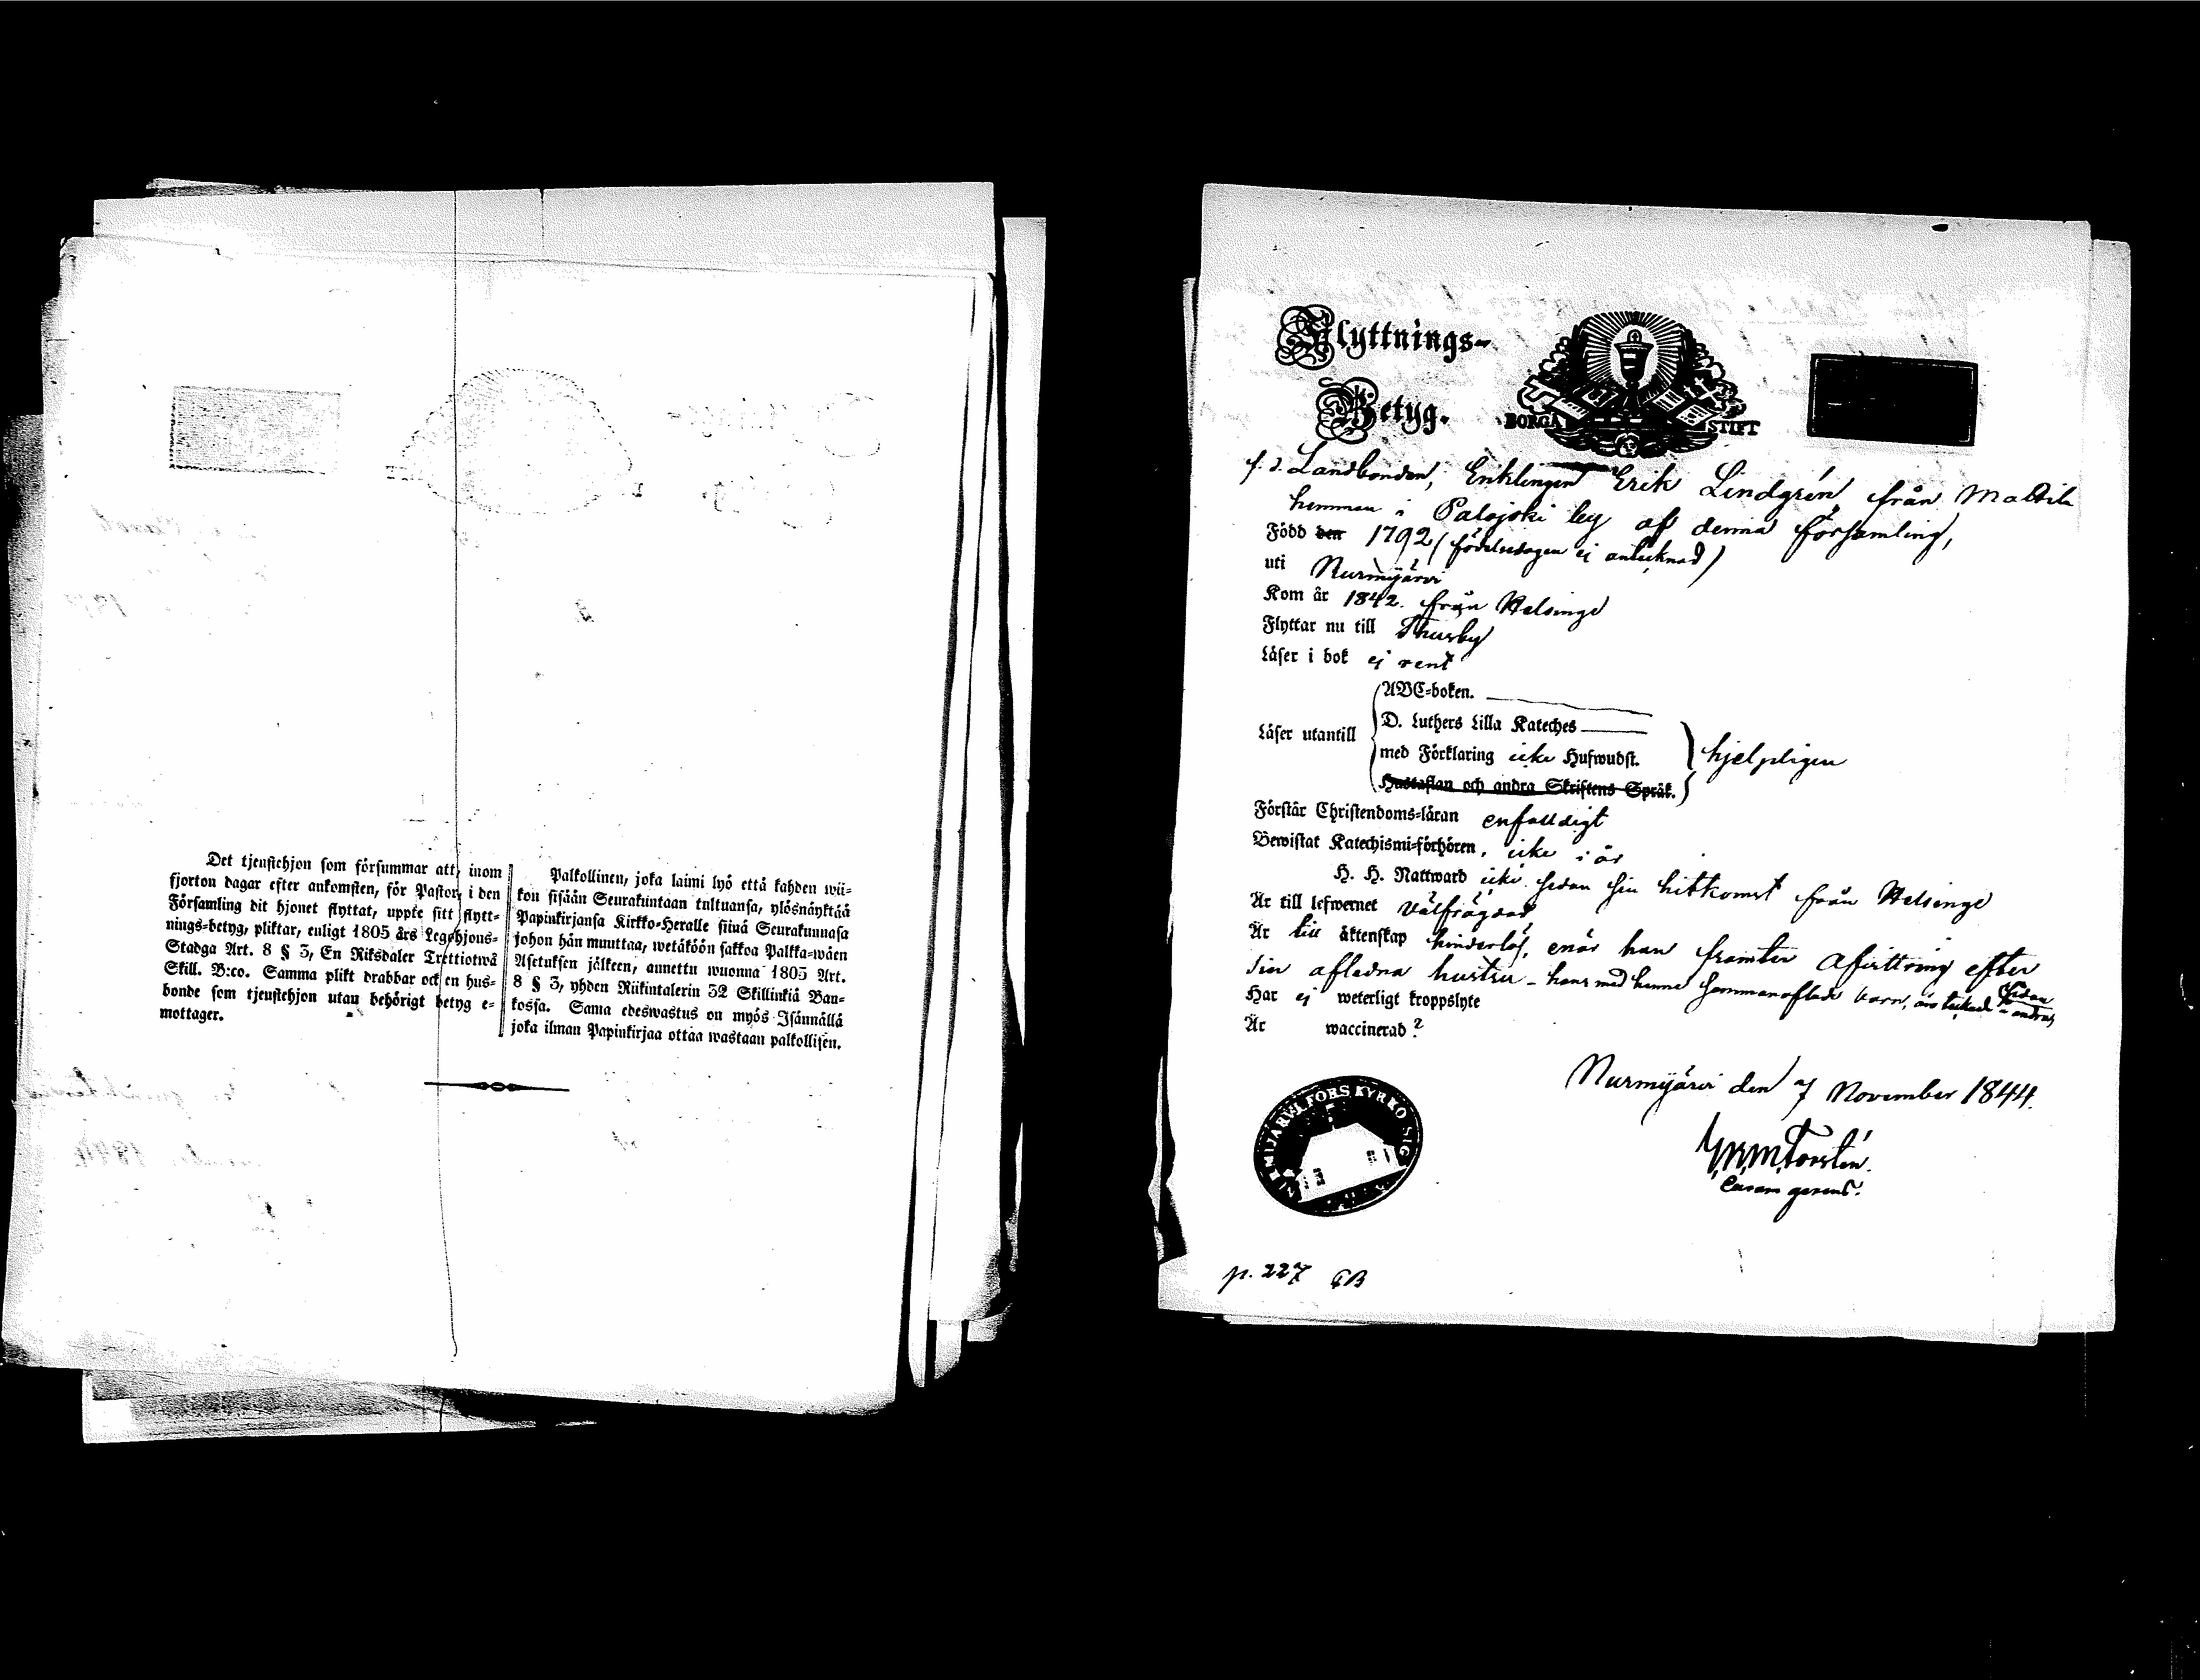 Det tjenstehjon som försummar att, inom
fjorton dagar efter ankomsten, för Pastor i den
Församling dit hjonet flyttat, uppte sitt flytt-
nings-betyg, pliktar, enligt 1805 års Legohjons-
Stadga Art. 8 § 3, En Riksdaler Trettiotwå
Skill. B:co. Samma plikt drabbar ock en hus-
bonde som tjenstehjon utan behörigt betyg e-
mottager.
Palkollinen, joka laimi lyö että kahden wii-
kon sisään Seurakuntaan tultuansa, ylösnäyttää
Papinkirjansa Kirkko-Heralle siinä Seurakunnasa
johon hän muuttaa, wetäköön sakkoa Palkka-wäen
Asetuksen jälkeen, annettu wuonna 1805 Art.
8 § 3, yhden Riikintalerin 32 Skillinkiä Ban-
kossa. Sama edeswastus on myös Isännällä
joka ilman Papinkirjaa ottaa wastaan palkollisen.
Flyttnings-
Betyg.
BORGÅ STIFT
f. d. Landbonden, Enklingen Erik Lindgrén, från Mattila
hemman i Palojoki by af denna församling,
Född den 1792 (födelsedagen ej antecknad)
uti Nurmijärvi
Kom år 1842. från Helsinge
Flyttar nu till Thusby
Läser i bok ej rent
Läser utantill
ABC-boken.
D. Luthers Lilla Kateches
med Förklaring icke Hufwudst.
Hustaflan och andra Skriftens Språk.
hjelpligen
Förstår Christendoms-läran enfaldigt
Bewistat Katechismi-förhören, icke i år
H. H. Nattward icke sedan sin hitkomst från Helsinge
Är till lefwernet välfrägdad
Är till äktenskap hinderlös, enär han framter Afwittring efter
sin aflidna hustru - hans med henne sammanaflade barn, äro tecknade
Har ej weterligt kroppslyte
Är waccinerad?
Nurmijärvi den 7 November 1844.
Torstén.
Curam gerens.
NURMIJÄRWI FÖRS KYRKO SIG
p. 227